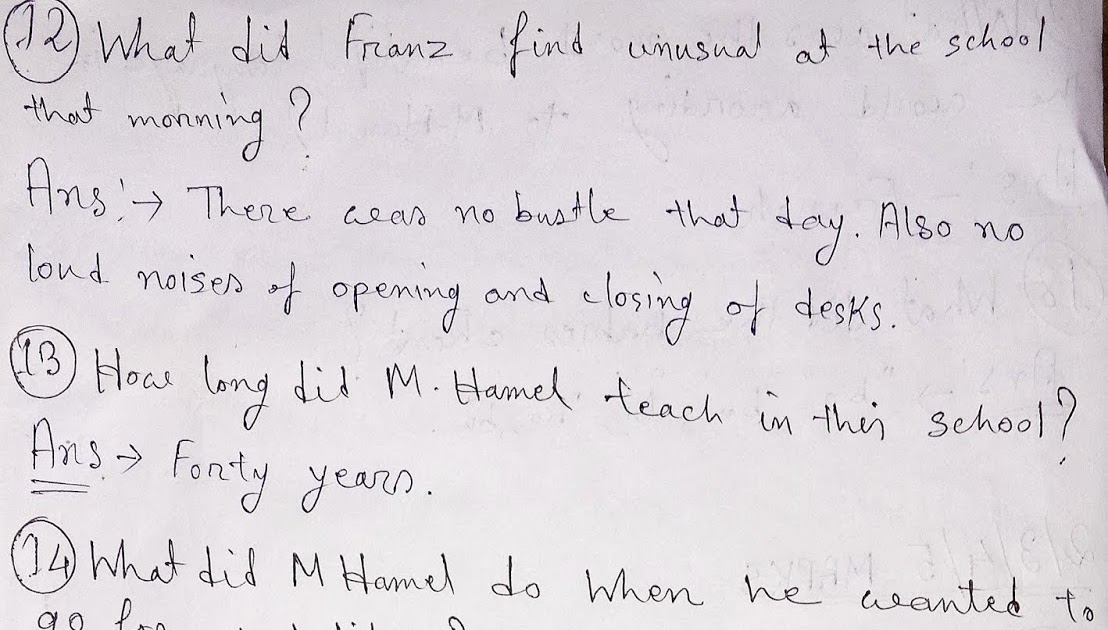 12 What did Franz find unusual at the school
that morning?
Ans:→ There was no bustle that day. Also no
loud noises of opening and closing of desks.
13 How long did M. Hamel teach in this school?
Ans → Forty years.
14 What did M Hamel do when he wanted to
go